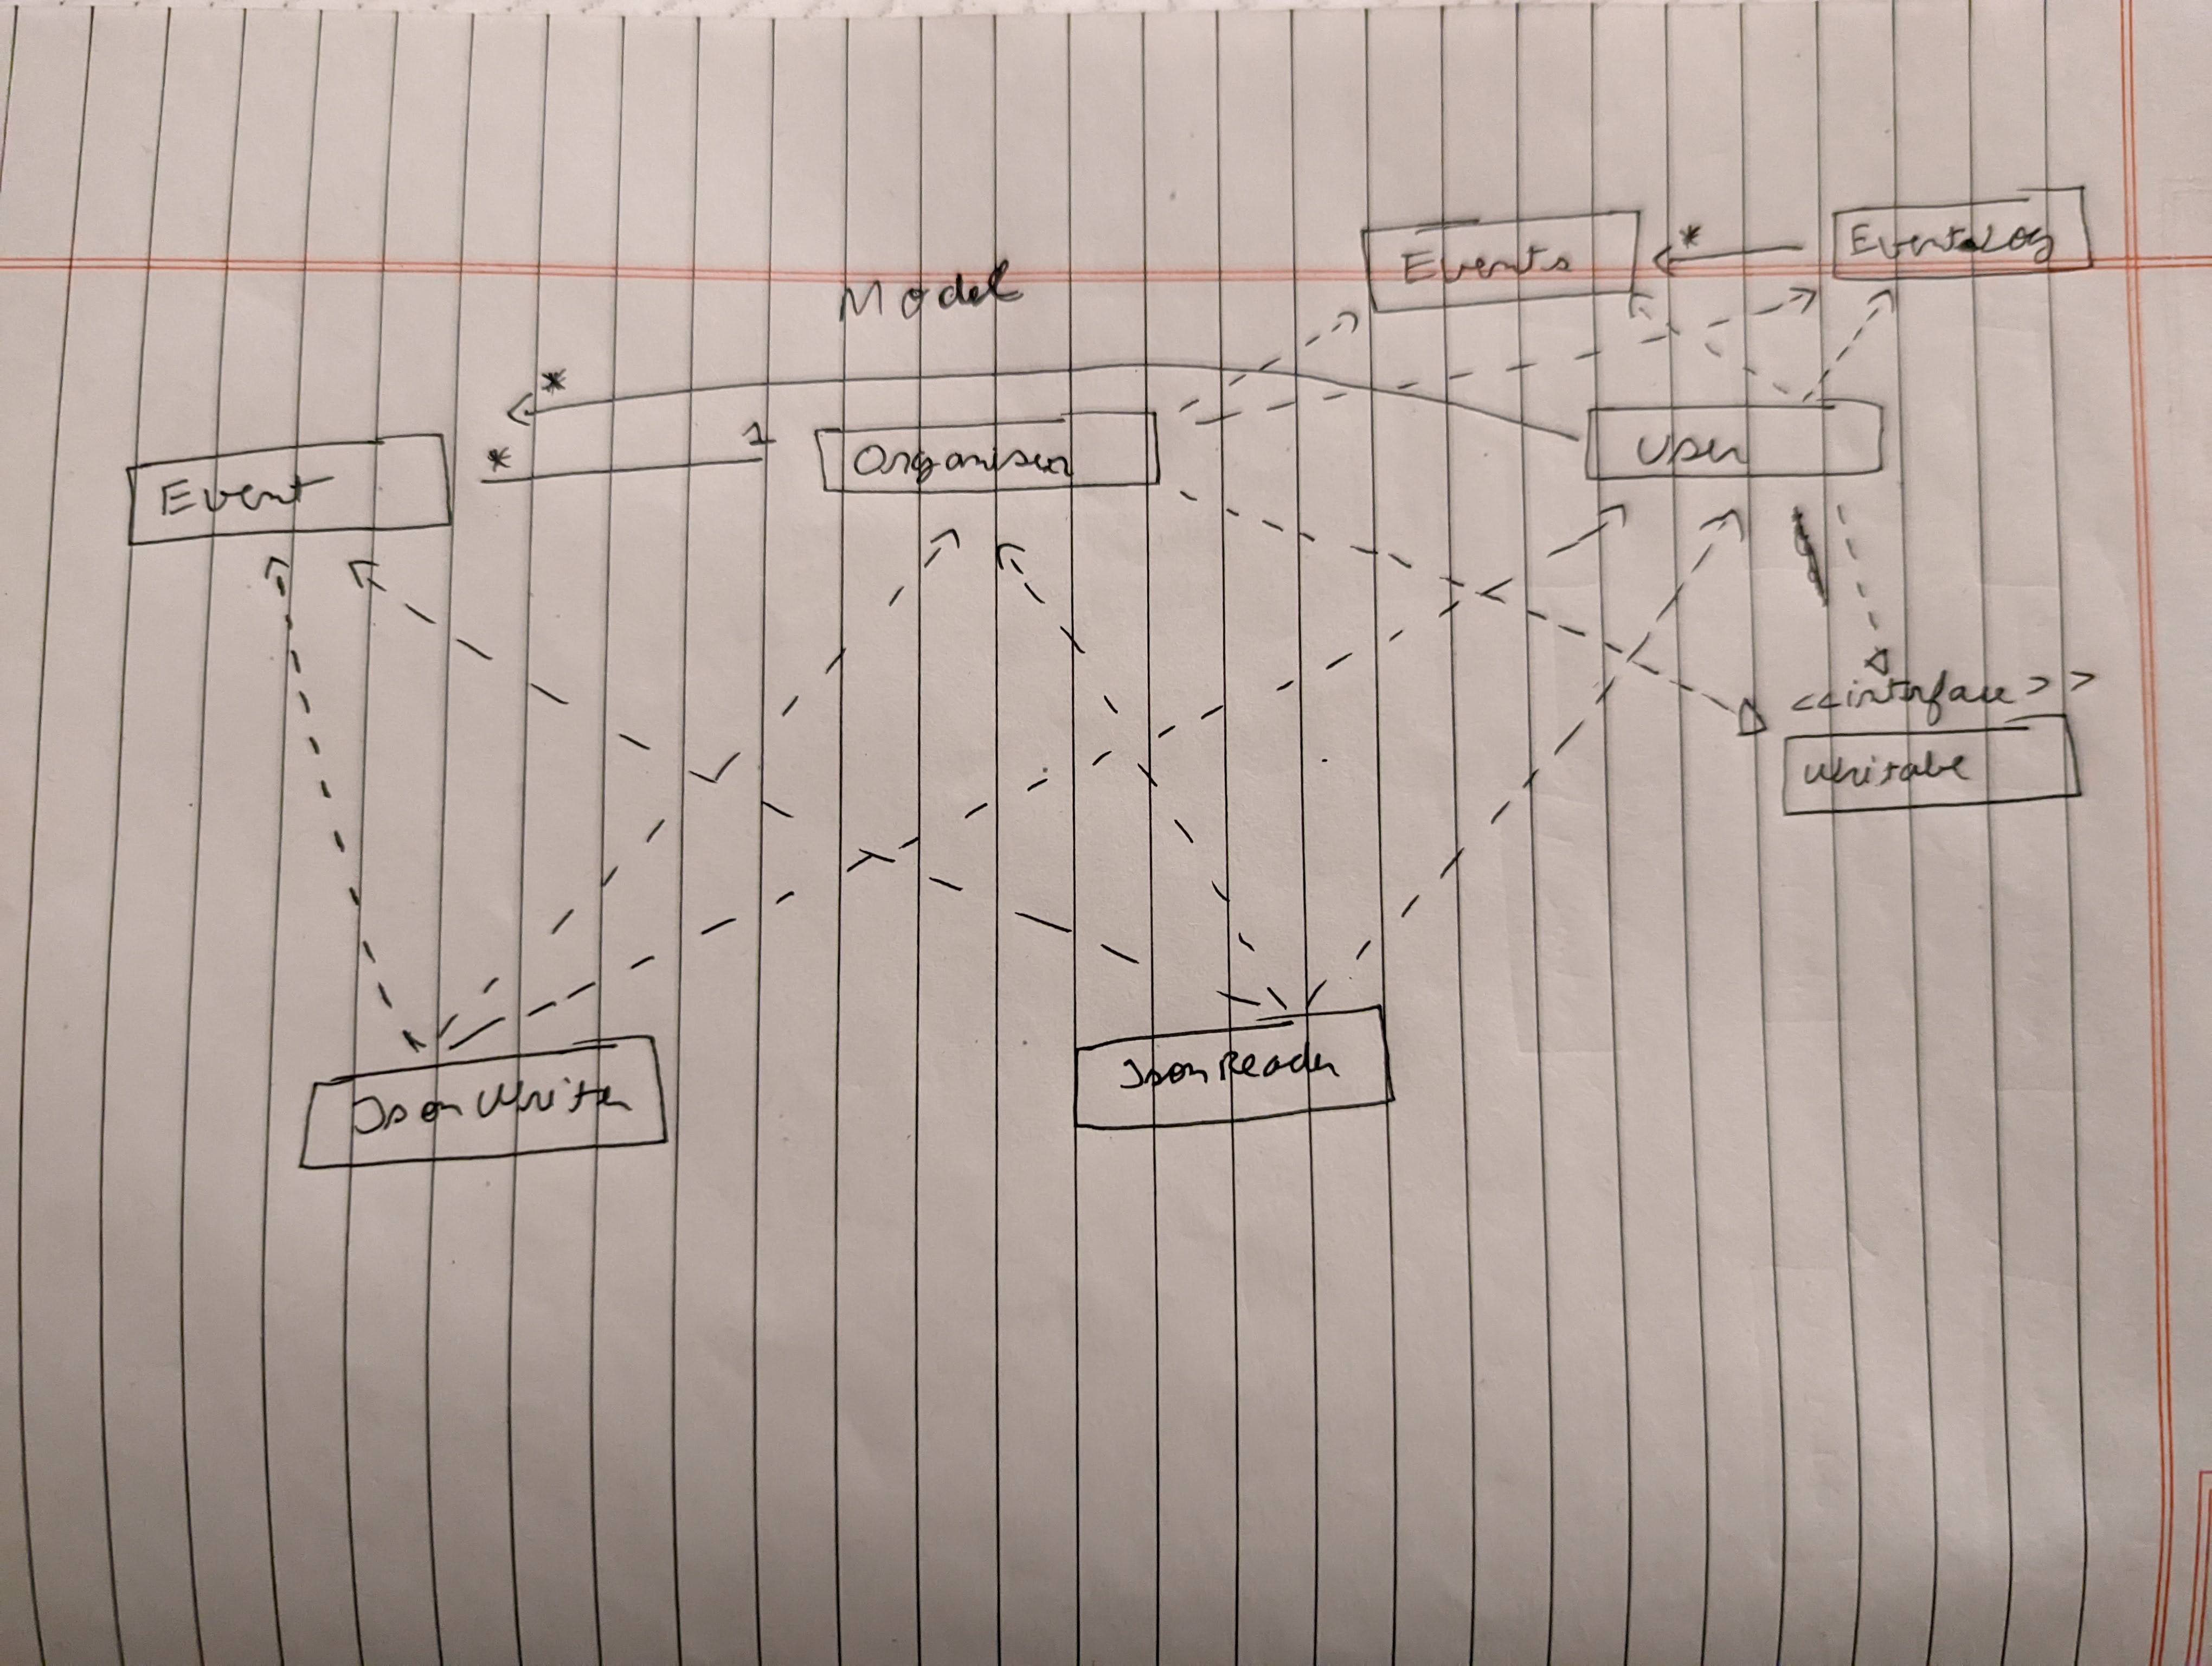 Events
* EventLog
Model
*
1
*
Event
Organiser
User
<<interface>>
Writable
JsonWriter
JsonReader